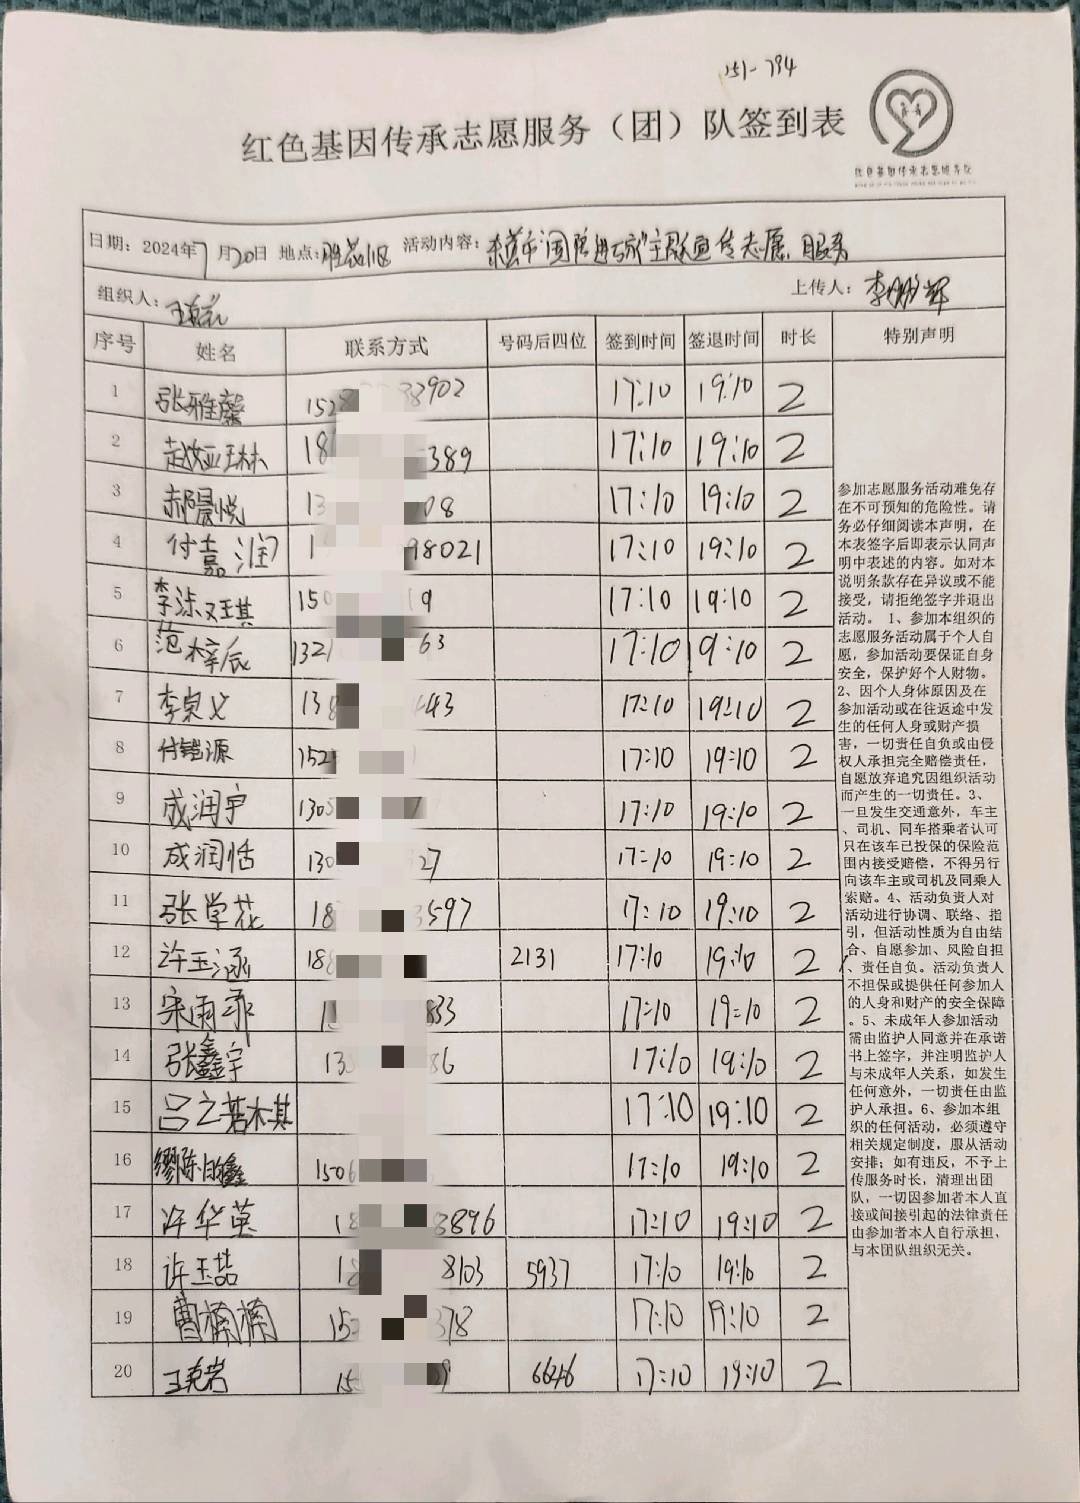 151-794
红色基因传承志愿服务（团）队签到表
红色基因传承志愿服务队
日期: 2024年7月20日 地点: 活动内容: 主题宣传志愿服务
组织人: 上传人: 李鹏辉
序号 姓名 联系方式 号码后四位 签到时间 签退时间 时长 特别声明
1 张雅馨 152 3902 17:10 19:10 2
2 赵姣亚琳 18 389 17:10 19:10 2
3 郝晨悦 13 08 17:10 19:10 2
4 付嘉润 1 98021 17:10 19:10 2
5 150 19 17:10 19:10 2
6 范梓辰 1321 63 17:10 19:10 2
7 李泉义 13 443 17:10 19:10 2
8 付铠源 152 17:10 19:10 2
9 成润宇 130 17:10 19:10 2
10 成润恬 130 27 17:10 19:10 2
11 张学花 18 3597 17:10 19:10 2
12 许玉涵 18 2131 17:10 19:10 2
13 宋雨 1 833 17:10 19:10 2
14 张鑫宇 13 86 17:10 19:10 2
15 吕之若棋 17:10 19:10 2
16 1506 17:10 19:10 2
17 许华英 18 3896 17:10 19:10 2
18 许玉喆 18 8103 5937 17:10 19:10 2
19 曹楠楠 152 378 17:10 19:10 2
20 王克岩 15 17:10 19:10 2
参加志愿服务活动难免存
在不可预知的危险性。请
务必仔细阅读本声明，在
本表签字后即表示认同声
明中表述的内容。如对本
说明条款存在异议或不能
接受，请拒绝签字并退出
活动。 1、参加本组织的
志愿服务活动属于个人自
愿，参加活动要保证自身
安全，保护好个人财物。
2、因个人身体原因及在
参加活动或在往返途中发
生的任何人身或财产损
害，一切责任自负或由侵
权人承担完全赔偿责任，
自愿放弃追究因组织活动
而产生的一切责任。3、
一旦发生交通意外，车主
、司机、同车搭乘者认可
只在该车已投保的保险范
围内接受赔偿，不得另行
向该车主或司机及同乘人
索赔。4、活动负责人对
活动进行协调、联络、指
引，但活动性质为自由结
合、自愿参加、风险自担
、责任自负。活动负责人
不担保或提供任何参加人
的人身和财产的安全保障
。5、未成年人参加活动
需由监护人同意并在承诺
书上签字，并注明监护人
与未成年人关系，如发生
任何意外，一切责任由监
护人承担。6、参加本组
织的任何活动，必须遵守
相关规定制度，服从活动
安排；如有违反，不予上
传服务时长，清理出团
队，一切因参加者本人直
接或间接引起的法律责任
由参加者本人自行承担，
与本团队组织无关。